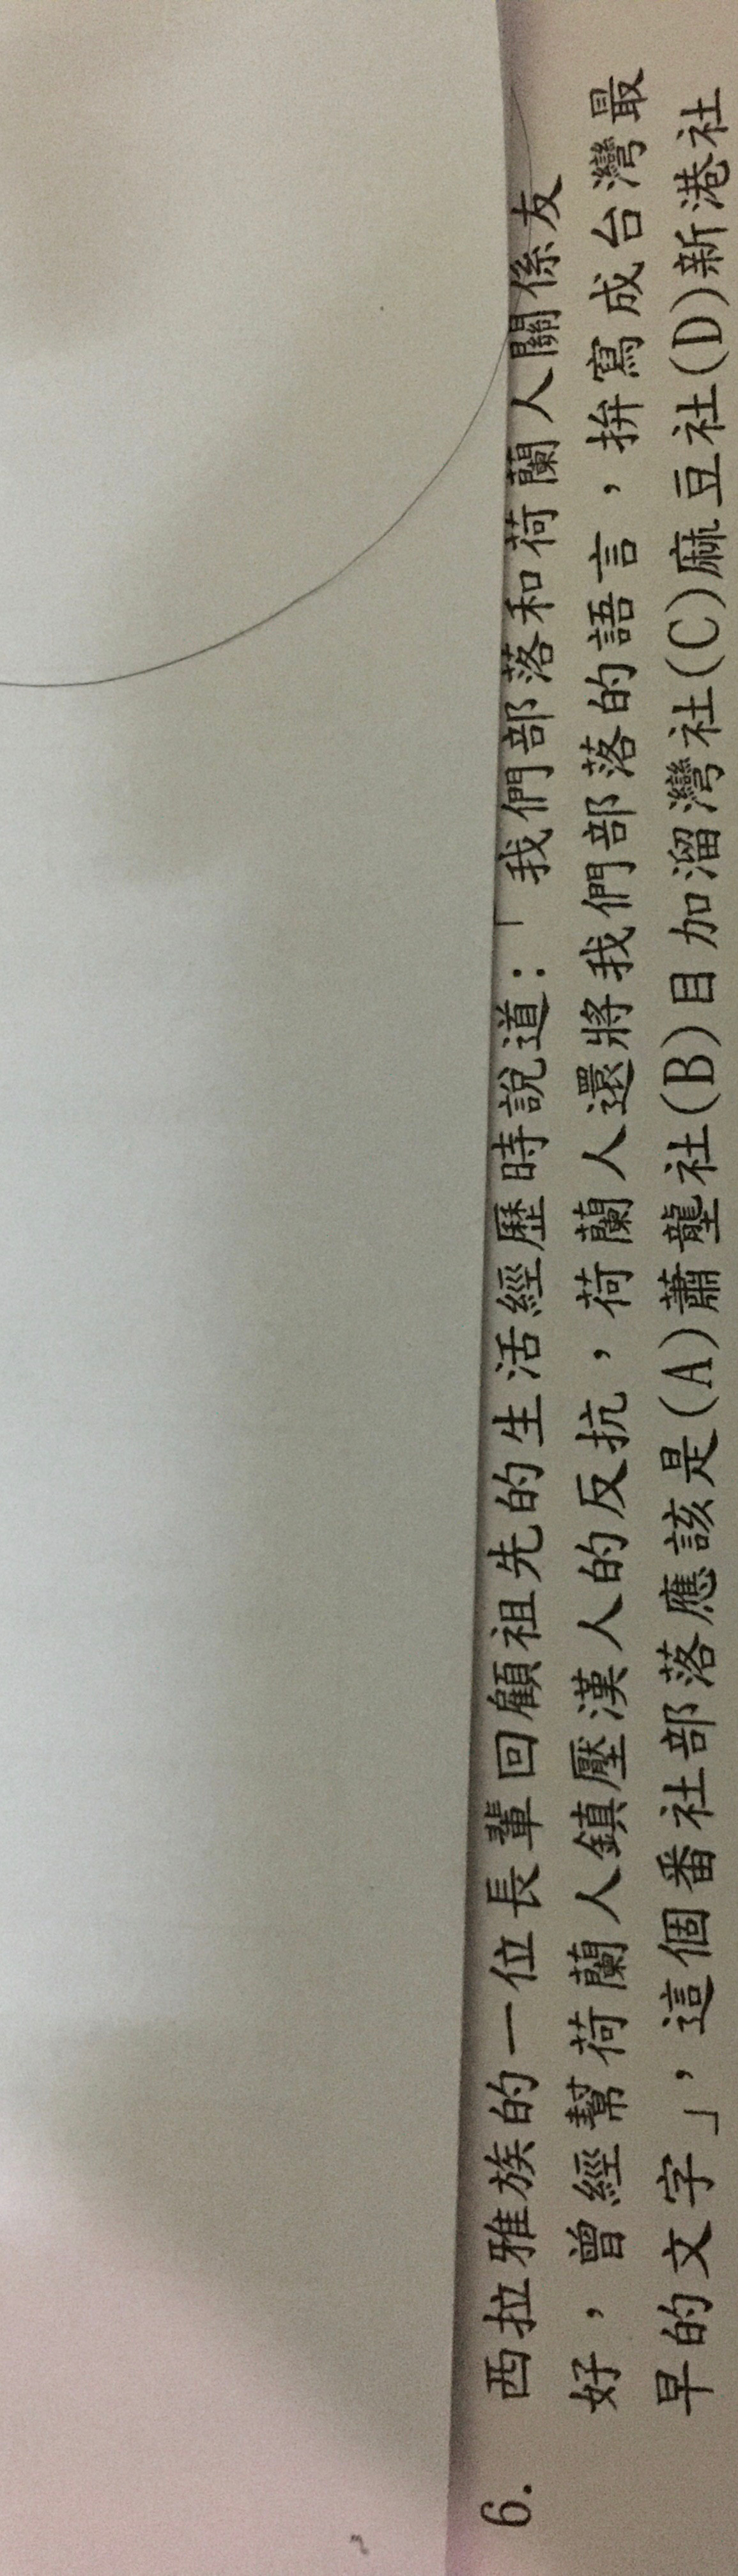 6. 西拉雅族的一位長輩回顧祖先的生活經歷時說道:「我們部落和荷蘭人關係友
好,曾經幫荷蘭人鎮壓漢人的反抗,荷蘭人還將我們部落的語言,拚寫成台灣最
早的文字」,這個番社部落應該是(A)蕭壟社(B)目加溜灣社(C)麻豆社(D)新港社